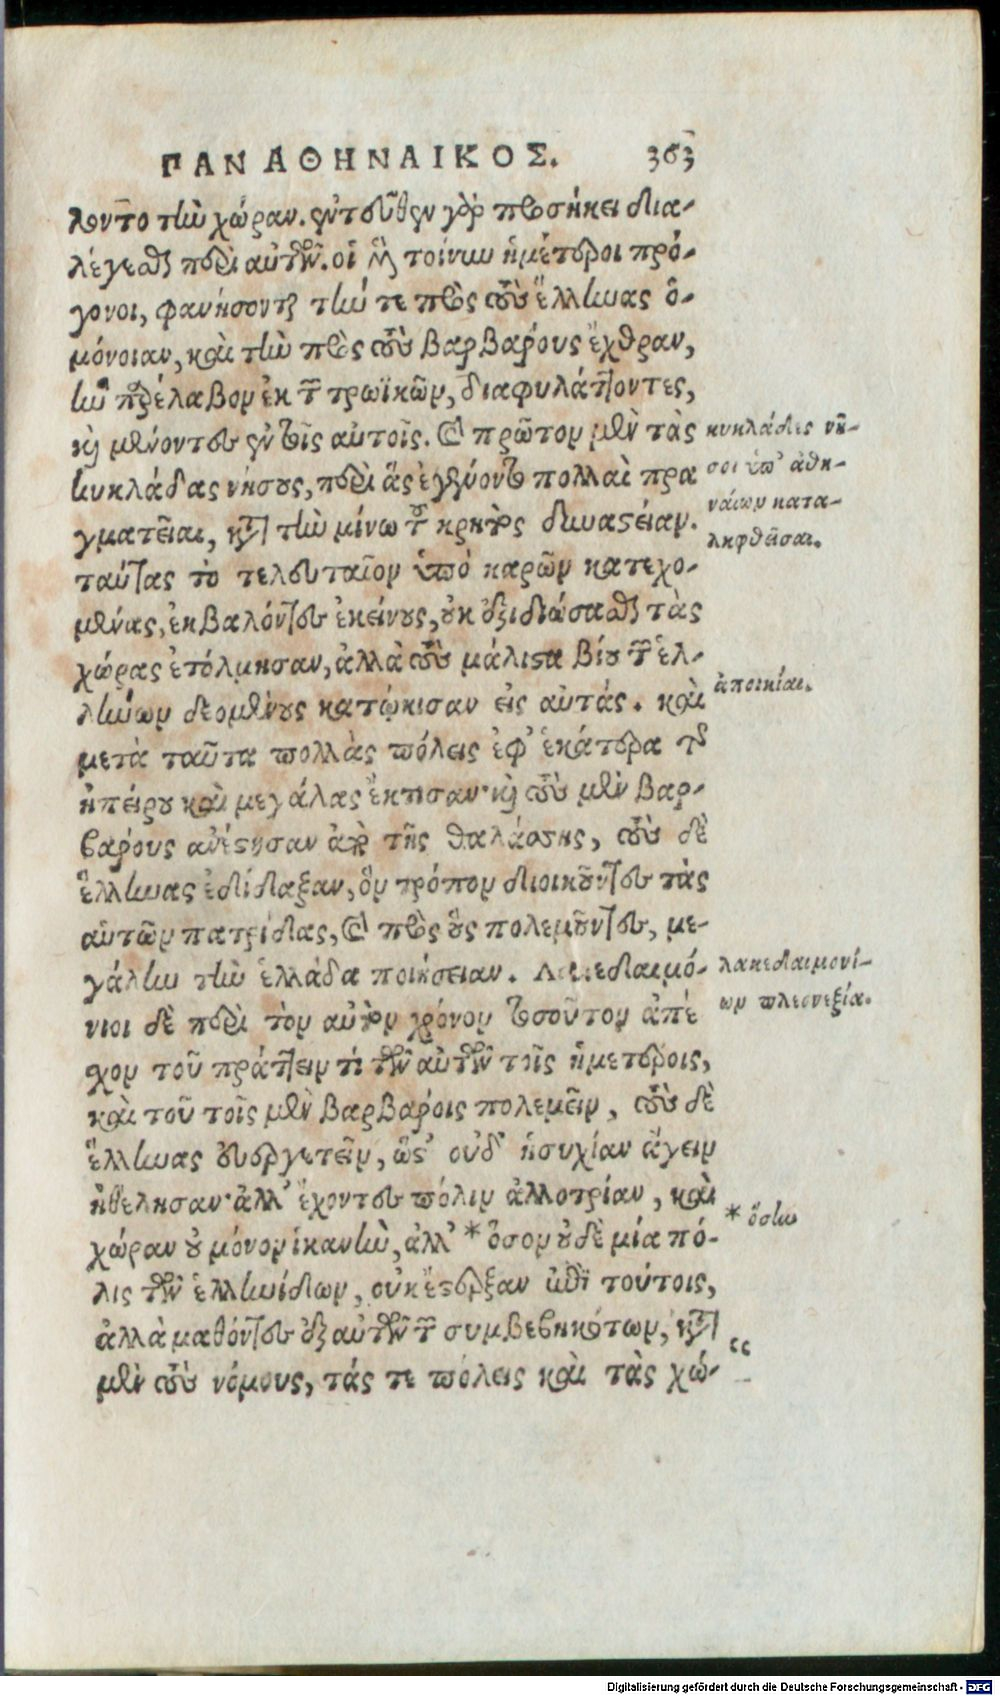 ΠΑΝΑΘΗΝΑΙΚΟΣ. 363
λοντο τὴν χώραν. ἐντεῦθεν γὰρ προσήκει δια-
λέγεσθαι περὶ αὐτῶν. οἱ δὲ τοίνυν ἡμέτεροι πρό-
γονοι, φανήσονται τήν τε πρὸς τοὺς ἕλληνας ὁ-
μόνοιαν, καὶ τὴν πρὸς τοὺς βαρβάρους ἔχθραν,
ἣν παρέλαβον ἐκ τῶν τρωϊκῶν, διαφυλάττοντες,
καὶ μένοντες ἐν τοῖς αὐτοῖς. καὶ πρῶτον μὲν τὰς
κυκλάδας νήσους, περὶ ἃς ἐγένοντο πολλαὶ πρα
γματεῖαι, κατὰ τὴν μίνω τοῦ κρητὸς δυναστείαν.
ταύτας τὸ τελευταῖον ὑπὸ καρῶν κατεχο-
μένας, ἐκβαλόντες ἐκείνους, οὐκ ἐξιδιώσασθαι τὰς
χώρας ἐτόλμησαν, ἀλλὰ τοὺς μάλιστα βίου τῶν ἑλ-
λήνων δεομένους κατῴκισαν εἰς αὐτάς. καὶ
μετὰ ταῦτα πολλὰς πόλεις ἐφ' ἑκάτερα τῆς
ἠπείρου καὶ μεγάλας ἔκτισαν· καὶ τοὺς μὲν βαρ-
βάρους ἀνέστησαν ἀπὸ τῆς θαλάσσης, τοὺς δὲ
ἕλληνας ἐδίδαξαν, ὃν τρόπον διοικοῦντες τὰς
αὑτῶν πατρίδας, καὶ πρὸς οὓς πολεμοῦντες, με-
γάλην τὴν ἑλλάδα ποιήσειαν. Λακεδαιμό-
νιοι δὲ περὶ τὸν αὐτὸν χρόνον τοσοῦτον ἀπέ
χον τοῦ πράττειν τι τῶν αὐτῶν τοῖς ἡμετέροις,
καὶ τοῦ τοῖς μὲν βαρβάροις πολεμεῖν, τοὺς δὲ
ἕλληνας εὐεργετεῖν, ὥστ' οὐδ' ἡσυχίαν ἄγειν
ἠθέλησαν· ἀλλ' ἔχοντες πόλιν ἀλλοτρίαν, καὶ
χώραν οὐ μόνον ἱκανὴν, ἀλλ' * ὅσον οὐδὲ μία πό-
λις τῶν ἑλληνίδων, οὐκ ἔστερξαν ἐπὶ τούτοις,
ἀλλὰ μαθόντες ἐξ αὐτῶν τῶν συμβεβηκότων, κατὰ
μὲν τοὺς νόμους, τάς τε πόλεις καὶ τὰς χώ-
κυκλάδες νῆ-
σοι ὑπ' ἀθη-
ναίων κατα-
ληφθεῖσαι.
ἀποικίαι.
λακεδαιμονί-
ων πλεονεξία.
* ὅσην
“
Digitalisierung gefördert durch die Deutsche Forschungsgemeinschaft - DFG